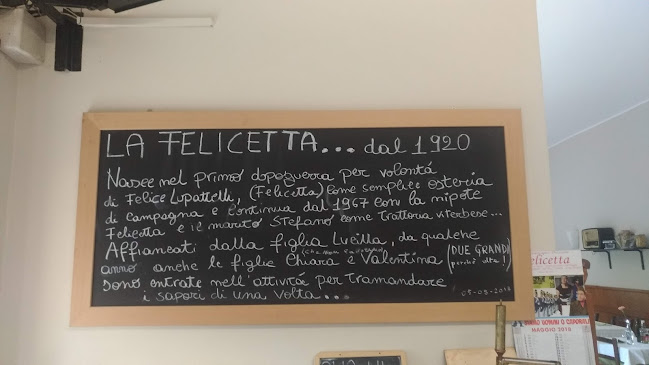 LA FELICETTA... dal 1920
Nasce nel primo dopoguerra per volontá
di Felice Lupattelli, (Felicetta) come semplice osteria
di campagna e continua dal 1967 con la nipote
Felicetta e il marito Stefano come trattoria viterbese...
Affiancati dalla figlia Lucilla, da qualche
anno anche le figlie Chiara e Valentina (DUE GRANDI
perché alte!)
sono entrate nell'attivitá per tramandare
i sapori di una volta...
elicetta
MAGGIO 2018